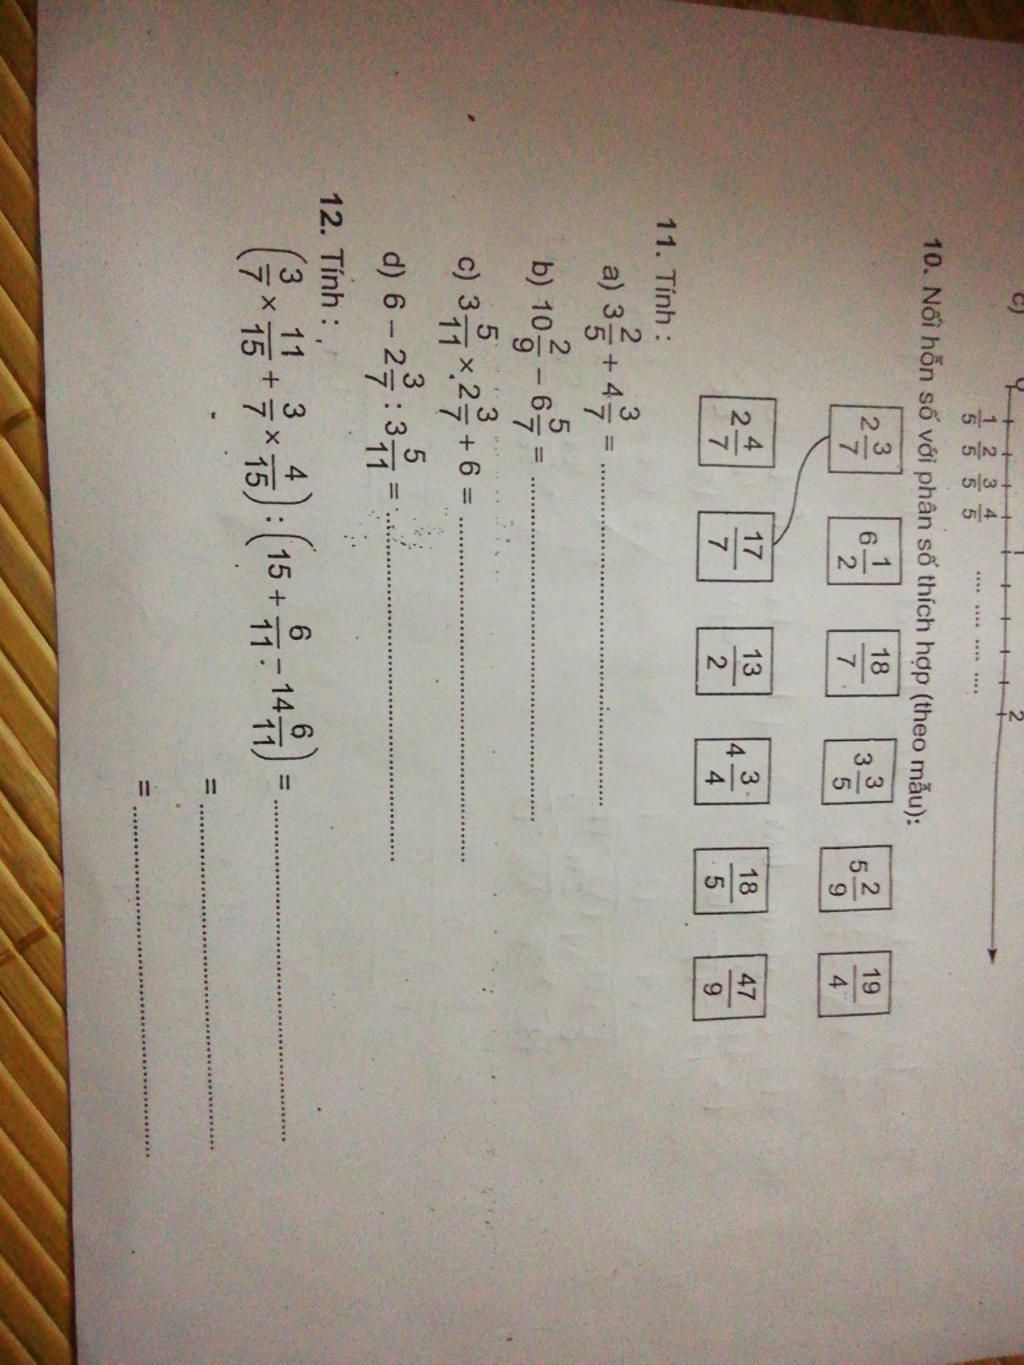 c)
0 1 2
1/5 2/5 3/5 4/5 .... .... .... ....
10. Nối hỗn số với phân số thích hợp (theo mẫu):
2 3/7 6 1/2 18/7 3 3/5 5 2/9 19/4
2 4/7 17/7 13/2 4 3/4 18/5 47/9
11. Tính :
a) 3 2/5 + 4 3/7 = ..............................
b) 10 2/9 − 6 5/7 = ..............................
c) 3 5/11 × 2 3/7 + 6 = ..............................
d) 6 − 2 3/7 : 3 5/11 = ..............................
12. Tính :
(3/7 × 11/15 + 3/7 × 4/15) : (15 + 6/11 − 14 6/11) = ..............................
= ..............................
= ..............................